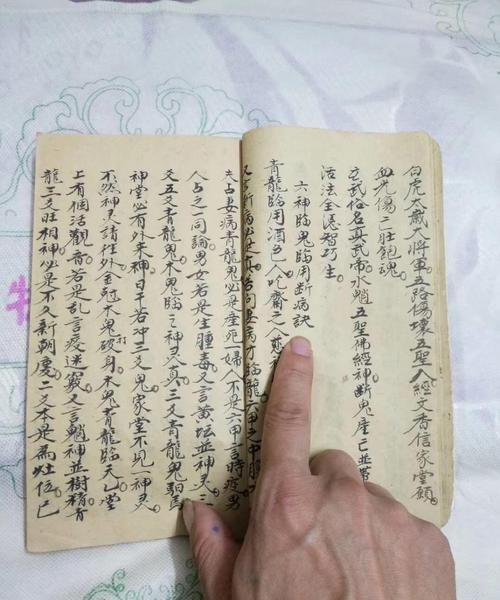 白虎太歲大將軍五路傷壞五聖人經文香信家堂願
血光傷亡壯飽魂
玄武俗名真武帝水魈五聖佛經神斷鬼座亡並帶
活法全憑智巧生
六神臨鬼臨用斷病訣
青龍臨用酒色人吃齋之人
夫占妻病青龍鬼必是產死婦人不是六甲言時疫男
人占之一同論男女若是生腫毒又言黃坛並神灵三
爻五爻青龍鬼木鬼臨之神灵真三爻青龍鬼
神堂必有外來神日干若冲三爻鬼家堂不見一神灵
不然神灵請往外金冠木鬼破身木鬼青龍臨天乙堂
上有個活觀音若是乱言疫迷竅又言魈神並樹精青
龍三爻旺相神必是不久新朝慶二爻本是為灶位已